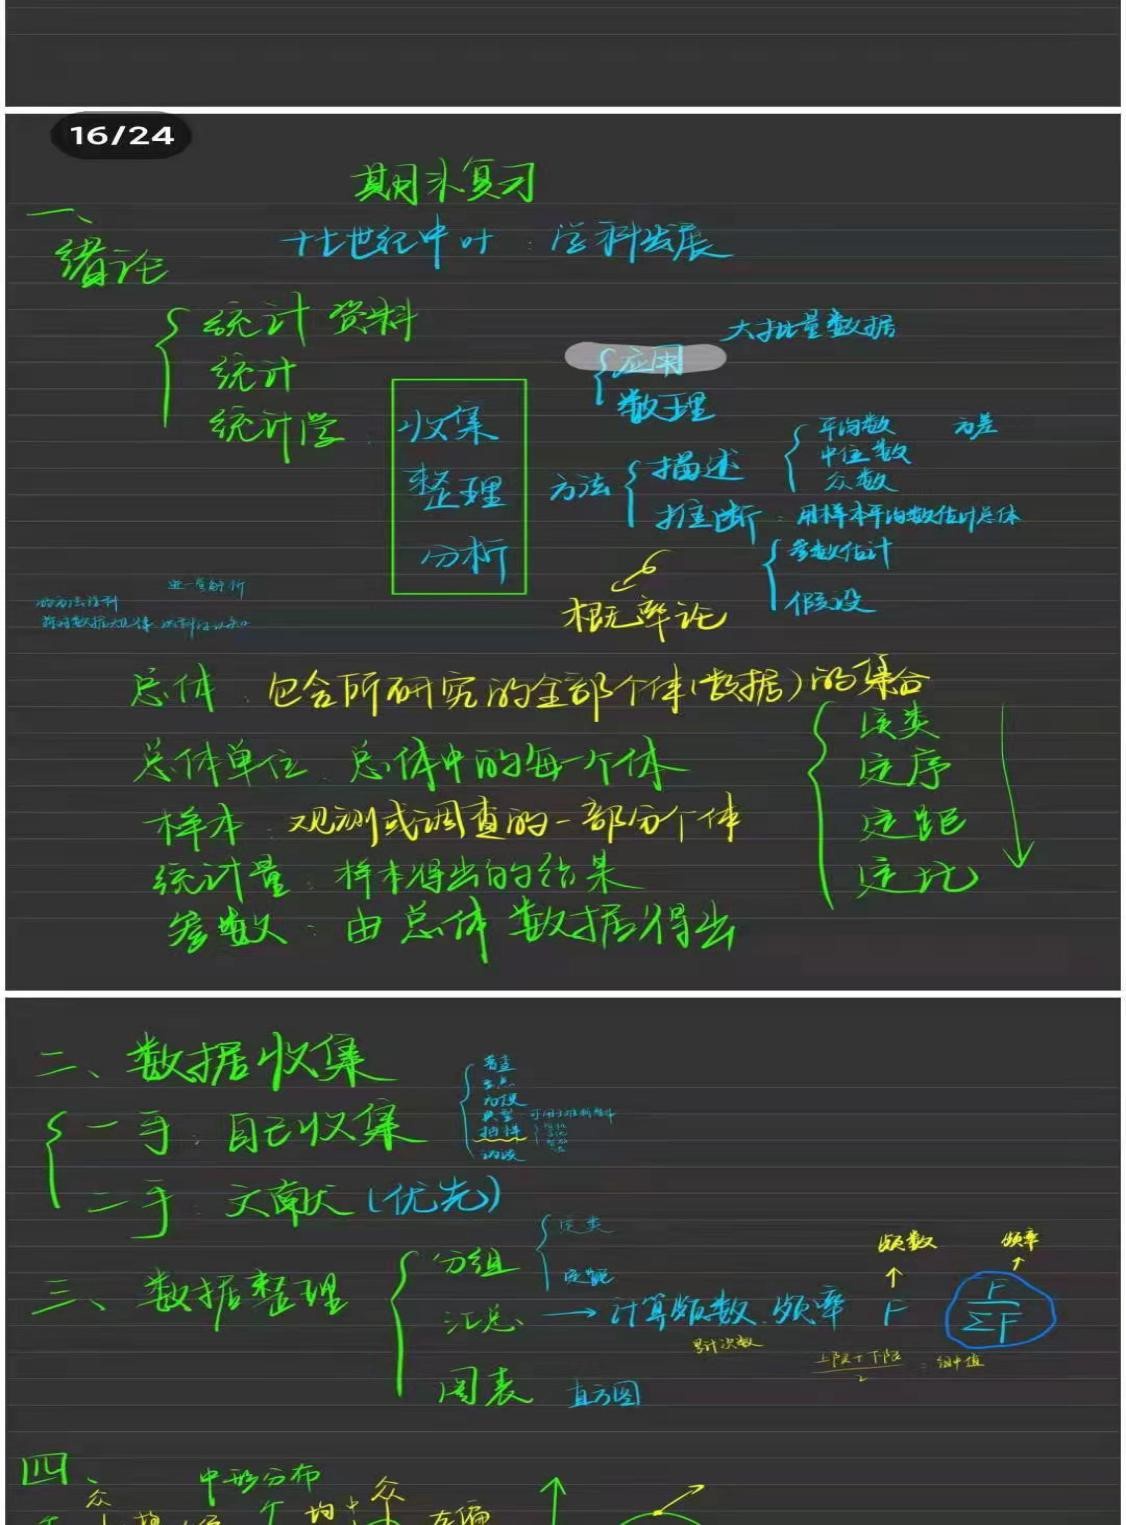 16/24
期末复习
一、
绪论
十七世纪中叶：学科发展
统计资料
大批量数据
统计
应用
数理
统计学：
收集
整理
分析
方法
描述
平均数 方差
中位数
众数
推断：用样本平均数估计总体
参数估计
假设
概率论
进一步解析
总体：包含所研究的全部个体(数据)的集合
总体单位：总体中的每一个体
样本：观测或调查的一部分个体
统计量：样本得出的结果
参数：由总体数据得出
定类
定序
定距
定比
二、数据收集
一手：自己收集
普查
重点
典型
抽样
二手：文献(优先)
三、数据整理
分组
定类
定距
汇总 → 计算频数、频率
累计次数
频数
F
频率
F/ΣF
上限+下限/2 = 组中值
图表 直方图
四、
中形分布
众
均中众
左偏